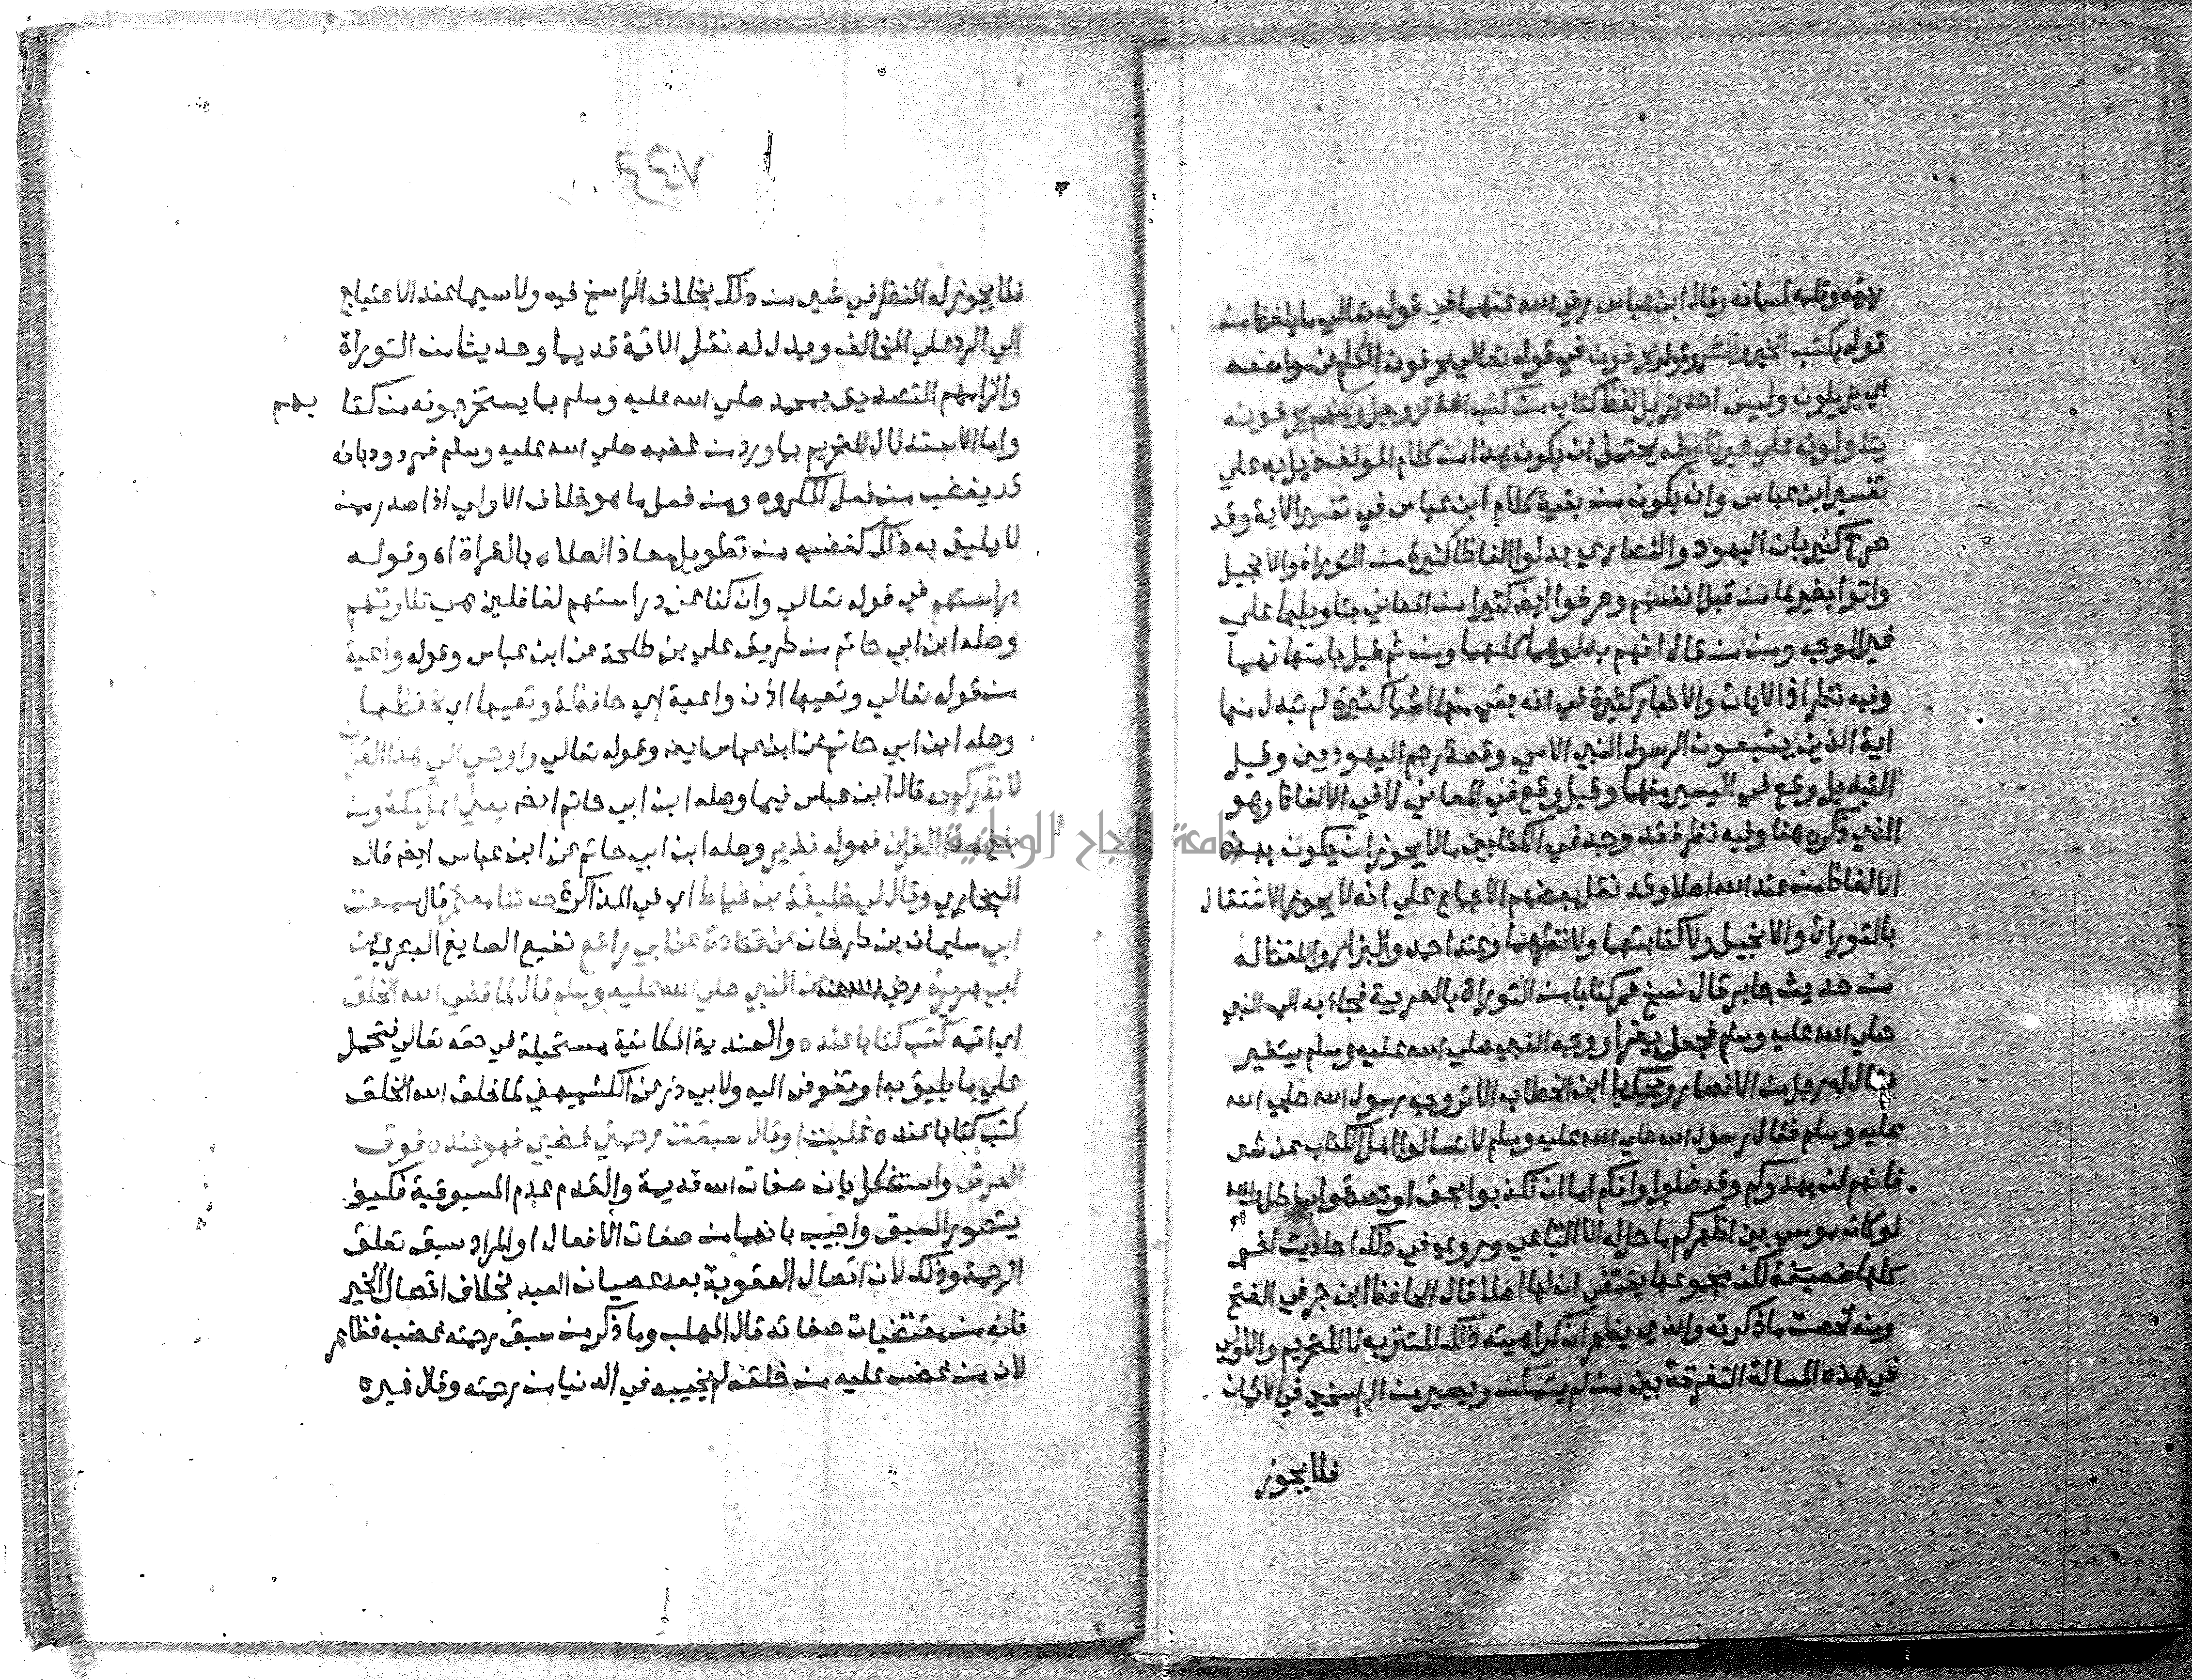 ريقه وقلمه لسانه وقال ابن عباس رضي الله عنهما في قوله تعالي ما يلفظ من
قوله يكتب الخير والشر وقوله يحرفون في قوله تعالي يحرفون الكلم عن مواضعه
اي يزيلون وليس احد يزيل لفظ كتاب من كتب الله عز وجل ولكنهم يحرفونه
يتاولونه علي غير تاويله يحتمل ان يكون هذا من كلام المولف ذيل به علي
تفسير ابن عباس وان يكون من بقية كلام ابن عباس في تفسير الاية وقد
صرح كثير بان اليهود والنصاري بدلوا الفاظا كثيرة من التوراة والانجيل
واتوا بغيرها من قبل انفسهم وحرفوا ايضا كثيرا من المعاني بتاويلها علي
غير الوجه ومن من قال انهم بدلوهما كلهما ومن ثم قيل بامتهانهما
وفيه نظر اذ الايات والاخبار كثيرة في انه بقي منهما اشيا كثيرة لم تبدل منها
اية الذين يتبعون الرسول النبي الامي وقصة رجم اليهوديين وقيل
التبديل وقع في اليسير منهما وقيل وقع في المعاني لا في الالفاظ وهو
الذي ذكره هنا وفيه نظر فقد وجد في الكتابين ما لا يجوز ان يكون بهذه
الالفاظ من عند الله اصلا وقد نقل بعضهم الاجماع علي انه لا يجوز الاشتغال
بالتوراة والانجيل ولا كتابتهما ولا نظرهما وعند احمد والبزار واللفظ له
من حديث جابر قال نسخ عمر كتابا من التوراة بالعربية فجاء به الي النبي
صلي الله عليه وسلم فجعل يقرا ووجه النبي صلي الله عليه وسلم يتغير
فقال له رجل من الانصار ويحك يا ابن الخطاب الا تري وجه رسول الله صلي الله
عليه وسلم فقال رسول الله صلي الله عليه وسلم لا تسالوا اهل الكتاب عن شي
فانهم لن يهدوكم وقد ضلوا وانكم اما ان تكذبوا بحق او تصدقوا بباطل والله
لو كان موسي بين اظهركم ما حل له الا اتباعي وروي في ذلك احاديث اخر
كلها ضعيفة لكن مجموعها يقتضي ان لها اصلا قال الحافظ ابن حجر في الفتح
ومنه لخصت ما ذكرته والذي يظهر ان كراهية ذلك للتنزيه لا للتحريم والاولي
في هذه المسالة التفرقة بين من لم يتمكن ويصير من الراسخين في الايمان
فلا يجوز
٧٤٤
فلا يجوز له النظر في شي من ذلك بخلاف الراسخ فيه ولا سيما عند الاحتياج
الي الرد علي المخالف ويدل له نقل الائمة قديما وحديثا من التوراة
والزامهم التصديق بمحمد صلي الله عليه وسلم بما يستخرجونه من كتا بهم
واما الاستدلال للتحريم بما ورد من غضبه صلي الله عليه وسلم فمردود بانه
قد يغضب من فعل المكروه ومن فعل ما هو خلاف الاولي اذا صدر ممن
لا يليق به ذلك كغضبه من تطويل معاذ الصلاة بالقراة اه وقوله
دراستهم في قوله تعالي وان كنا عن دراستهم لغافلين هي تلاوتهم
وصله ابن ابي حاتم من طريق علي بن طلحة عن ابن عباس وقوله واعية
من قوله تعالي وتعيها اذن واعية اي حافظة وتعيها اي تحفظها
وصله ابن ابي حاتم عن ابن عباس ايضا وقوله تعالي واوحي الي هذا القران
لانذركم به قال ابن عباس فيما وصله ابن ابي حاتم ايضا يعني اهل مكة ومن
بلغ هذا القران فهو له نذير وصله ابن ابي حاتم عن ابن عباس ايضا قال
البخاري وقال لي خليفة بن خياط اي في المذاكرة حدثنا معتمر قال سمعت
ابي سليمان بن طرخان عن قتادة عن ابي رافع نفيع الصايغ البصري عن
ابي هريرة رضي الله عنه عن النبي صلي الله عليه وسلم قال لما قضي الله الخلق
اي اتمه كتب كتابا عنده والعندية المكانية مستحيلة في حقه تعالي فتحمل
علي ما يليق به او تفوض اليه ولابي ذر عن الكشميهني لما خلق الله الخلق
كتب كتابا عنده غلبت او قال سبقت رحمتي غضبي فهو عنده فوق
العرش واستشكل بان صفات الله قديمة والقدم عدم المسبوقية فكيف
يتصور السبق واجيب بانهما من صفات الافعال او المراد سبق تعلق
الرحمة وذلك لان اتصال العقوبة بعد عصيان العبد بخلاف اتصال الخير
فانه من مقتضيات صفاته قال المهلب وما ذكر من سبق رحمته غضبه فظاهر
لان من غضب عليه من خلقه لم يخيبه في الدنيا من رحمته وقال غيره
جامعة النجاح الوطنية